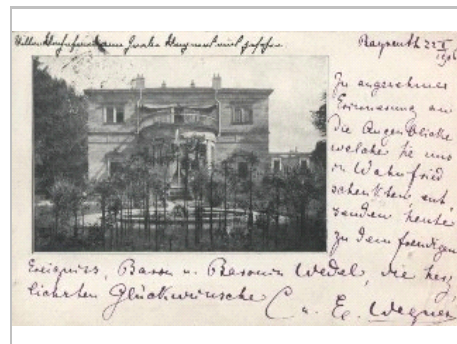 Bayreuth 22
Zu angenehmer
Erinnerung an
die Augenblicke
welche Sie uns
in Wahnfried
schenkten,
senden heute
zu dem freudigen
Ereigniss, Baron u. Baronin Wedel, die herz
lichsten Glückwünsche C u. E. Wegner